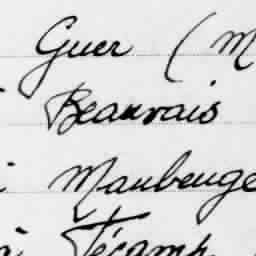 Guer (M
Beauvais
i Maubeuge
Fécamp